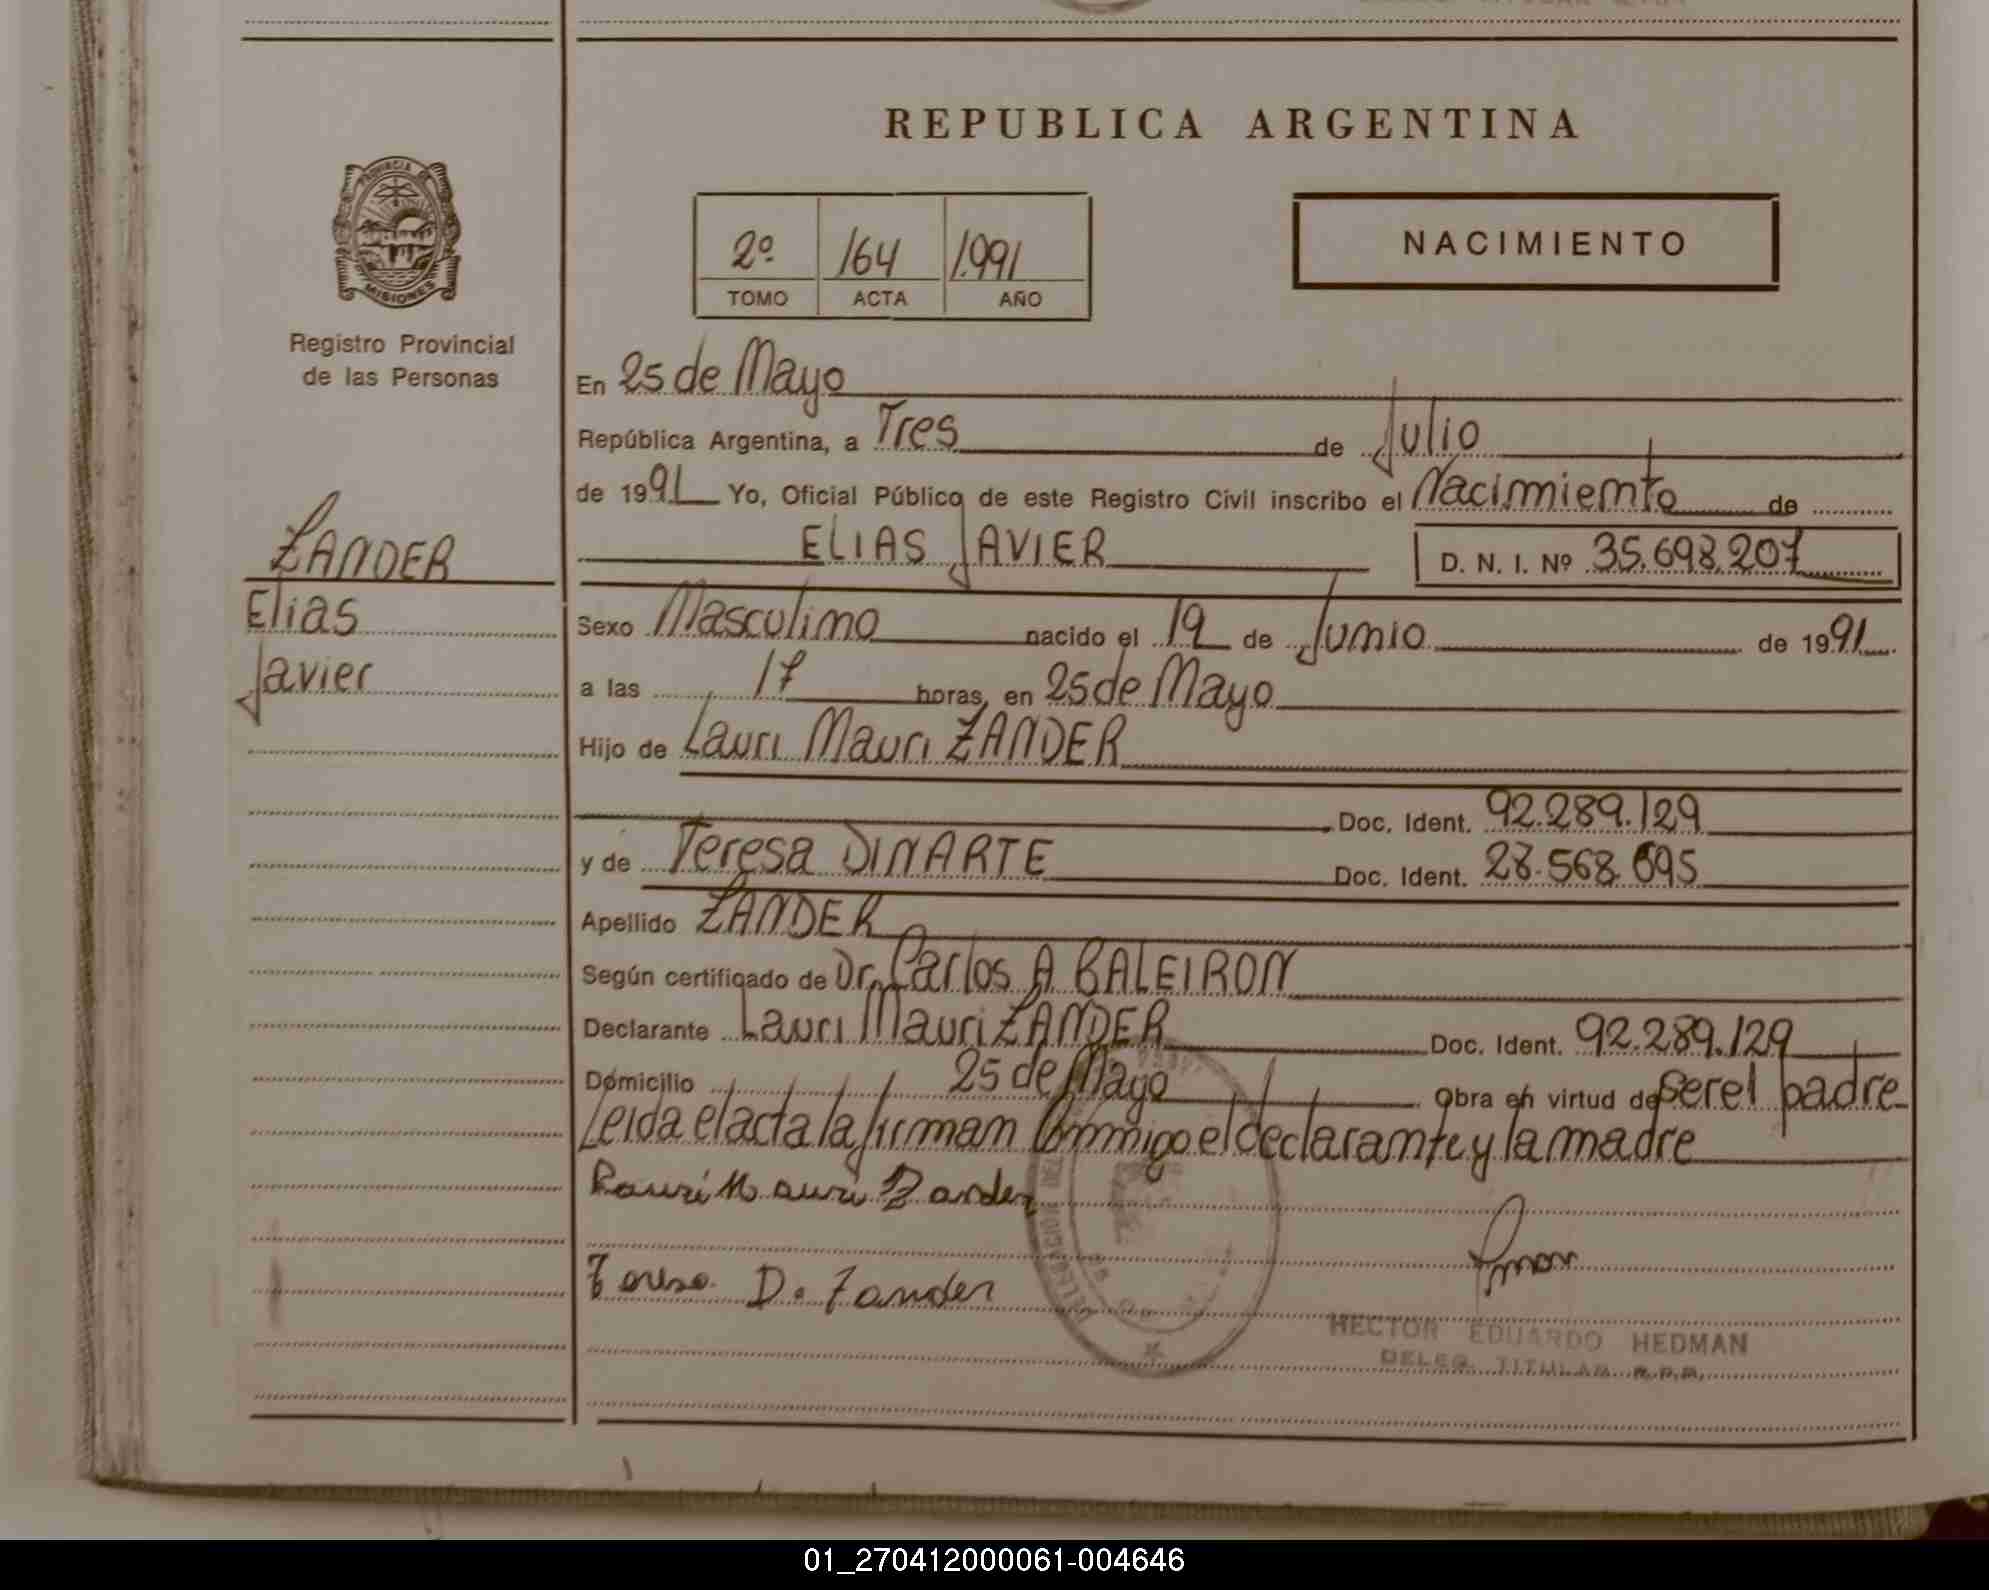 REPUBLICA ARGENTINA
PROVINCIA DE
MISIONES
2º 164 1.991
TOMO ACTA AÑO
NACIMIENTO
Registro Provincial
de las Personas
En 25 de Mayo
República Argentina, a Tres de Julio
de 1991 Yo, Oficial Público de este Registro Civil inscribo el Nacimiento de
ZANDER
Elias
Javier
ELIAS JAVIER D. N. I. Nº 35.698.207
Sexo Masculino nacido el 19 de Junio de 1991
a las 17 horas, en 25 de Mayo
Hijo de Lauri Mauri ZANDER
Doc. Ident. 92.289.129
y de Teresa DINARTE Doc. Ident. 28.568.695
Apellido ZANDER
Según certificado de Dr. Carlos A BALEIRON
Declarante Lauri Mauri ZANDER Doc. Ident. 92.289.129
Domicilio 25 de Mayo Obra en virtud de ser el padre
Leida el acta la firman conmigo el declarante y la madre
Lauri Mauri Zander
Teresa D. Zander
HECTOR EDUARDO HEDMAN
DELEG. TITULAR R.P.P.
01_270412000061-004646